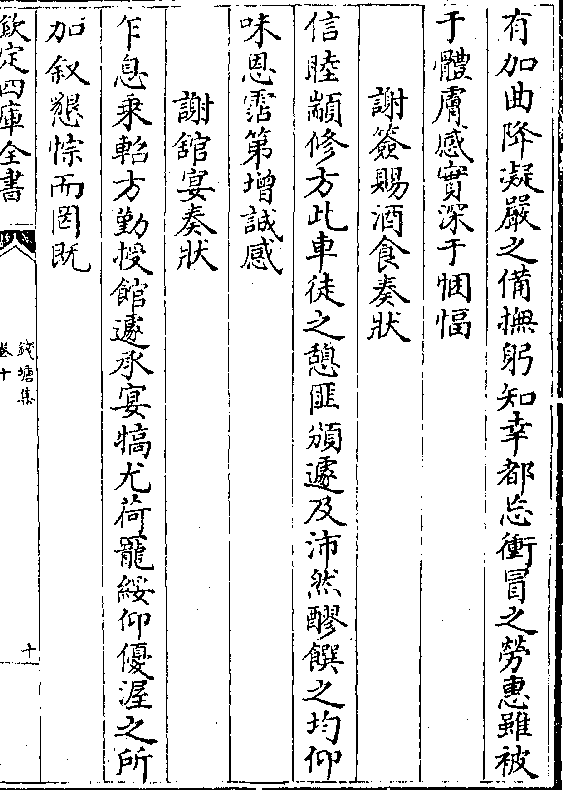 有加曲降凝嚴之備撫躬知幸都忘衝冒之勞惠雖被
于體膚感實深于悃愊
謝簽賜酒食奏狀
信睦顓修方此車徒之憩匪頒遽及沛然醪饌之均仰
味恩霑第增誠感
謝舘宴奏狀
乍息乘軺方勤授館遽承宴犒尤荷寵綏仰優渥之所
加叙懇悰而罔既
欽定四庫全書
錢塘集
卷十
十